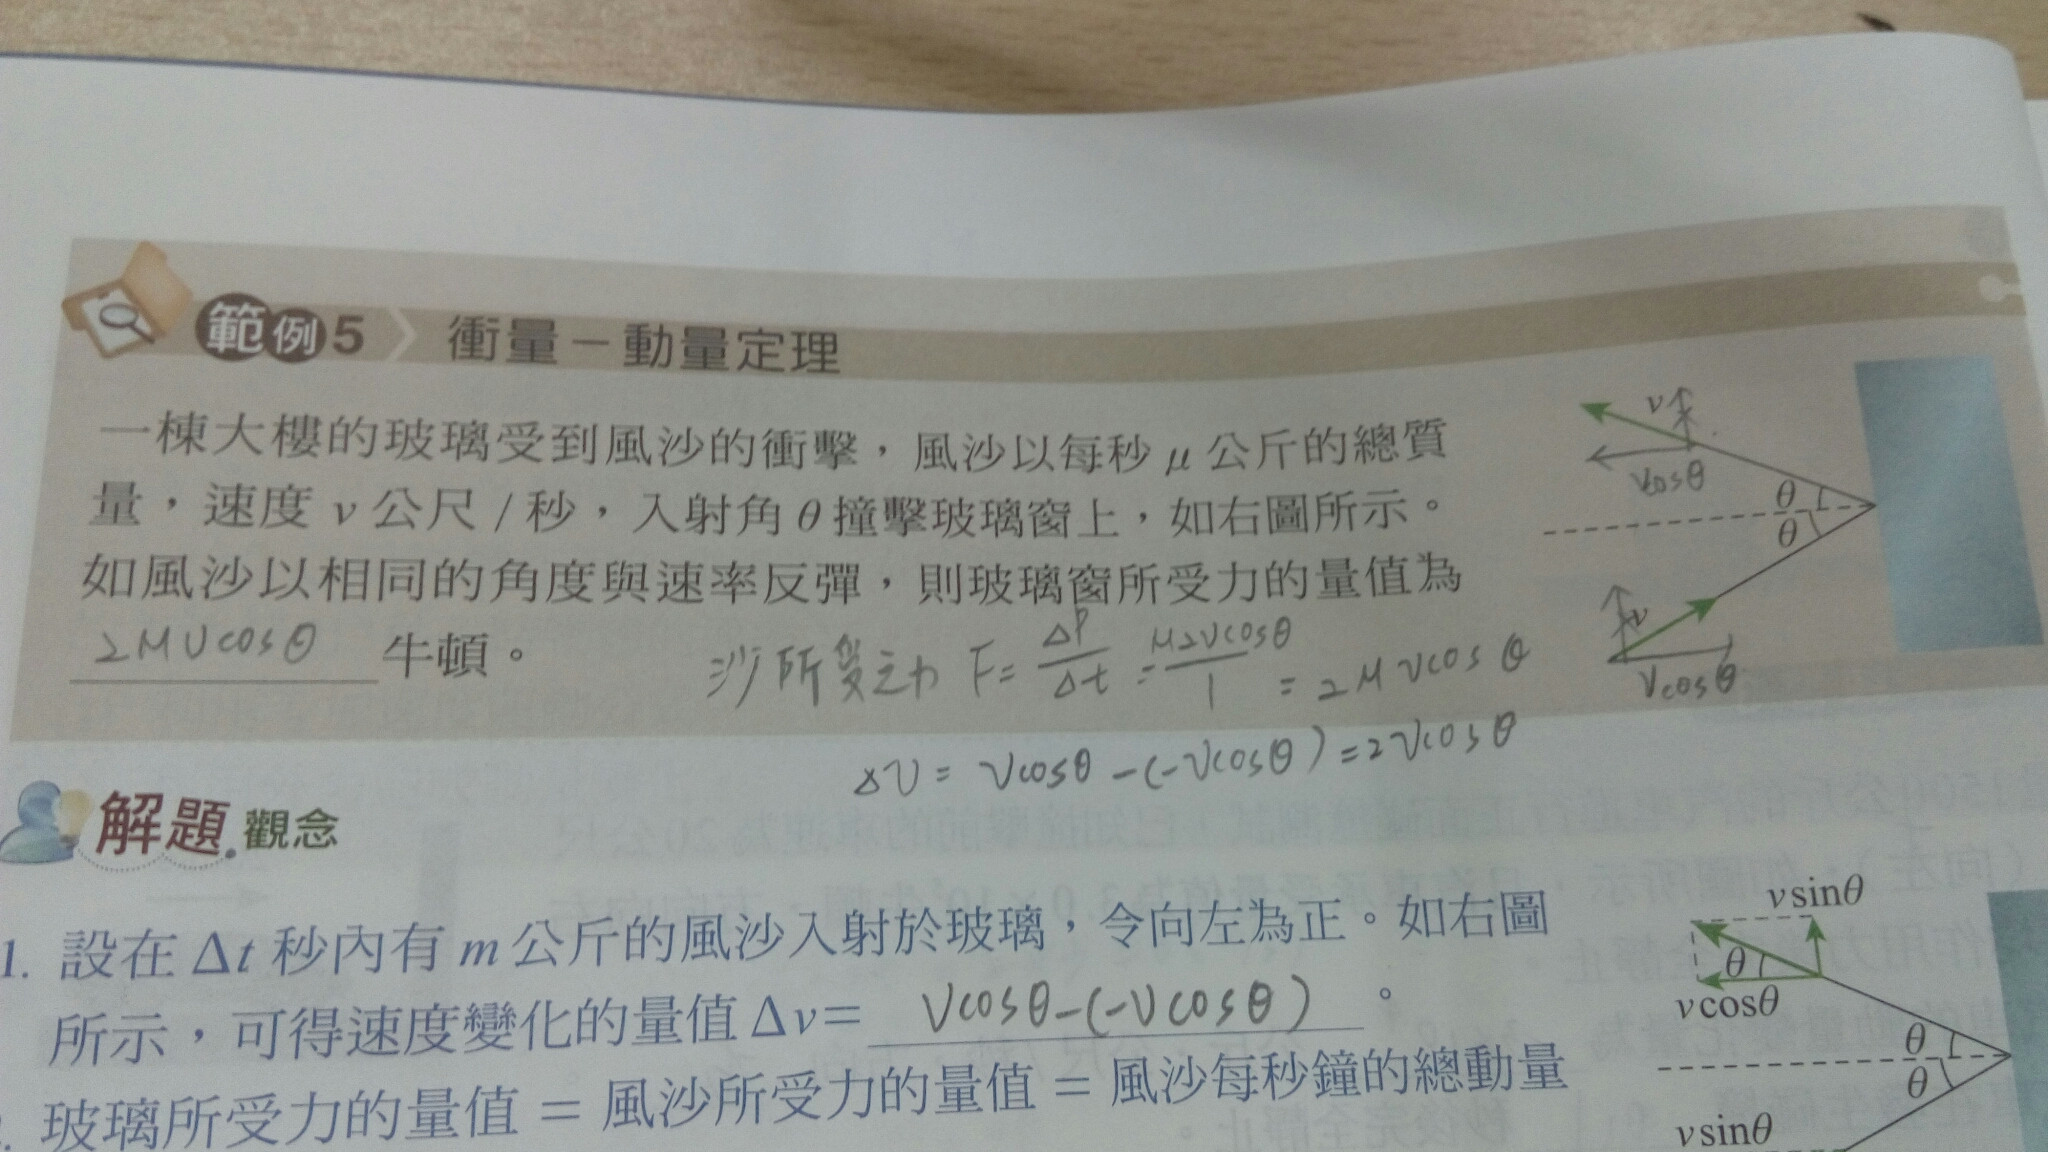 範例5 衝量－動量定理
一棟大樓的玻璃受到風沙的衝擊，風沙以每秒 μ 公斤的總質
量，速度 v 公尺 / 秒，入射角 θ 撞擊玻璃窗上，如右圖所示。
如風沙以相同的角度與速率反彈，則玻璃窗所受力的量值為
2μvcosθ 牛頓。
v
vcosθ
θ
θ
v
vcosθ
沙所受之力 F = ΔP/Δt = μ2vcosθ/1 = 2μvcosθ
Δv = vcosθ-(-vcosθ) = 2vcosθ
解題觀念
1. 設在 Δt 秒內有 m 公斤的風沙入射於玻璃，令向左為正。如右圖
所示，可得速度變化的量值 Δv = vcosθ-(-vcosθ) 。
. 玻璃所受力的量值 = 風沙所受力的量值 = 風沙每秒鐘的總動量
v sinθ
θ
v cosθ
θ
θ
v sinθ